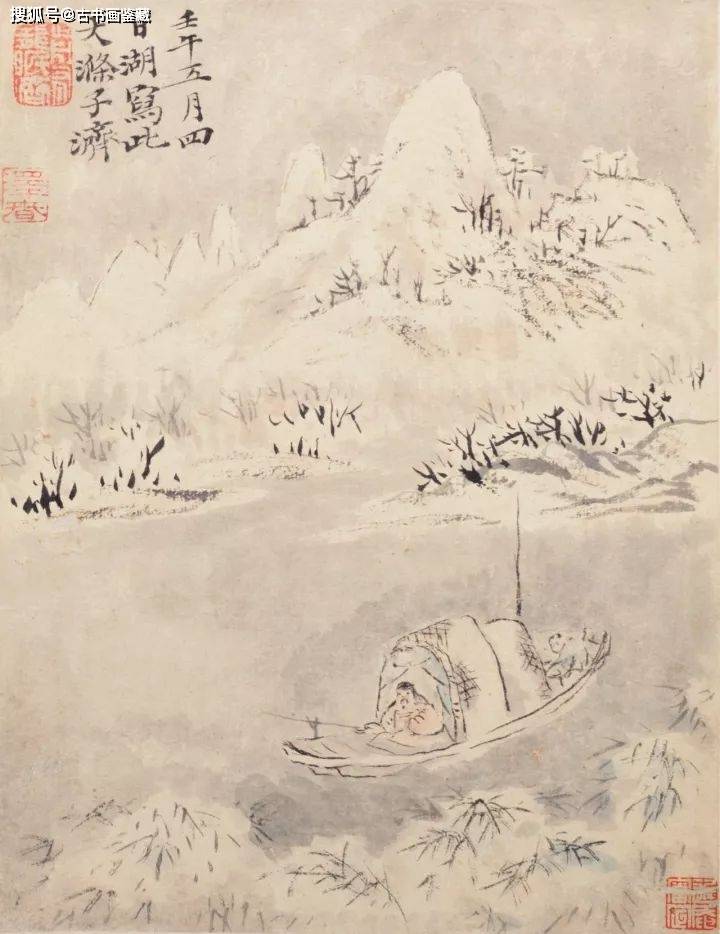 搜狐号@古书画鉴藏
壬午五月四
日湖寫此
大滌子濟